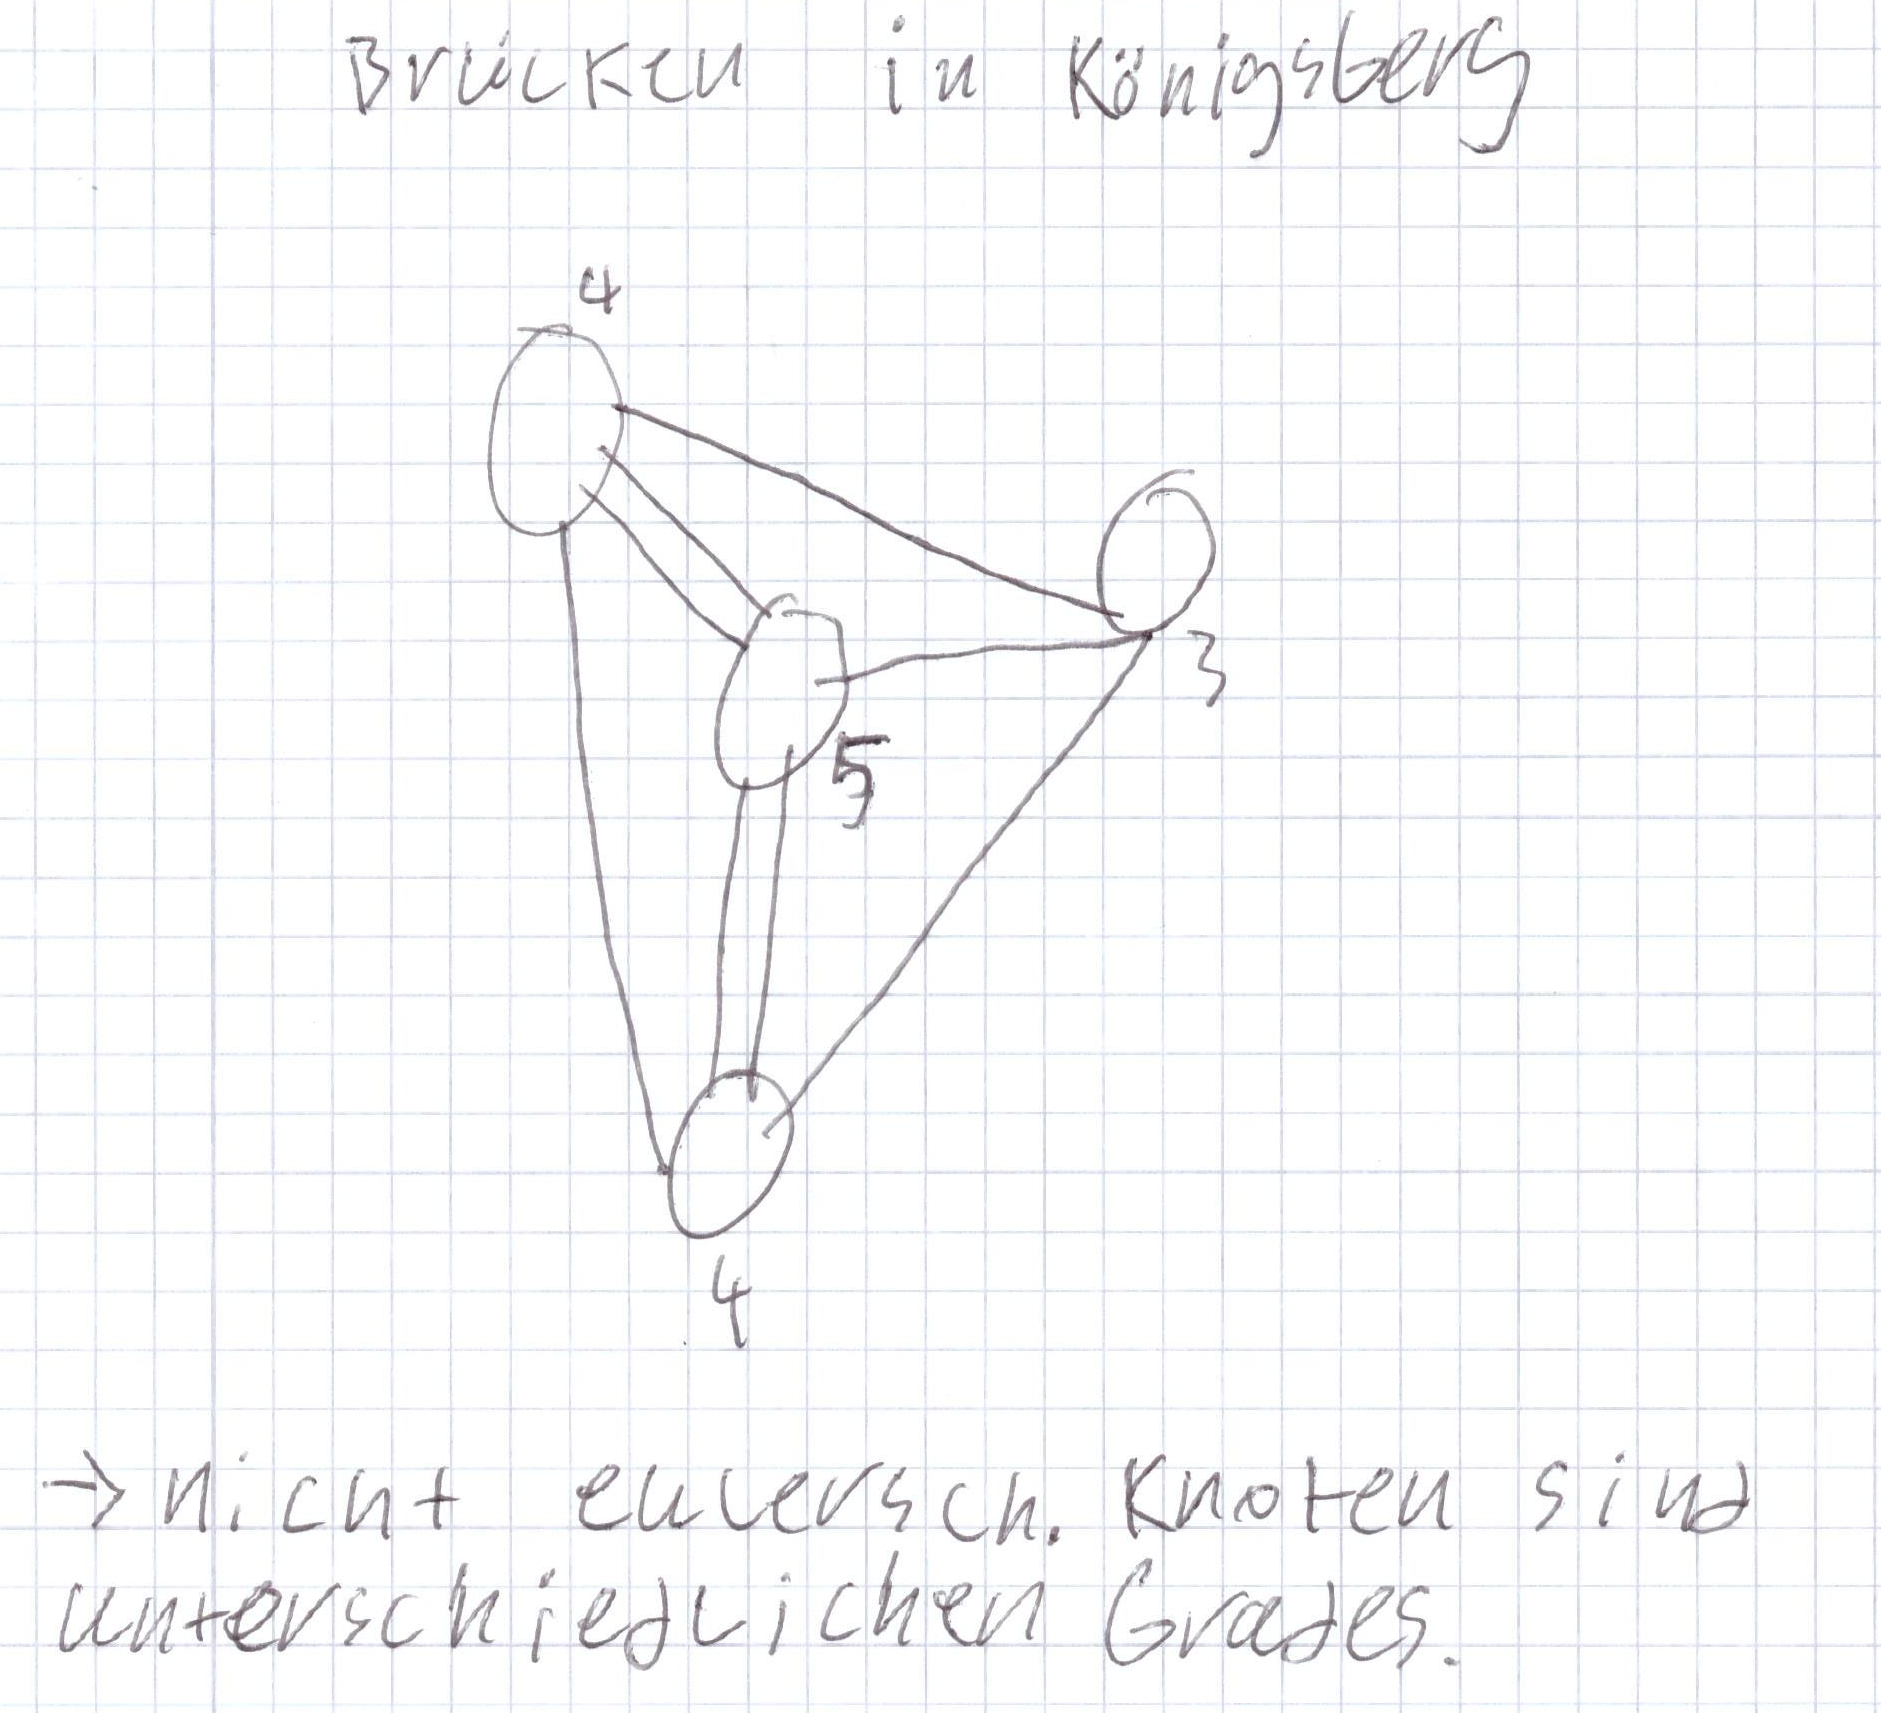 Brücken in Königsberg
4
3
5
4
→ Nicht eulersch. Knoten sind
unterschiedlichen Grades.